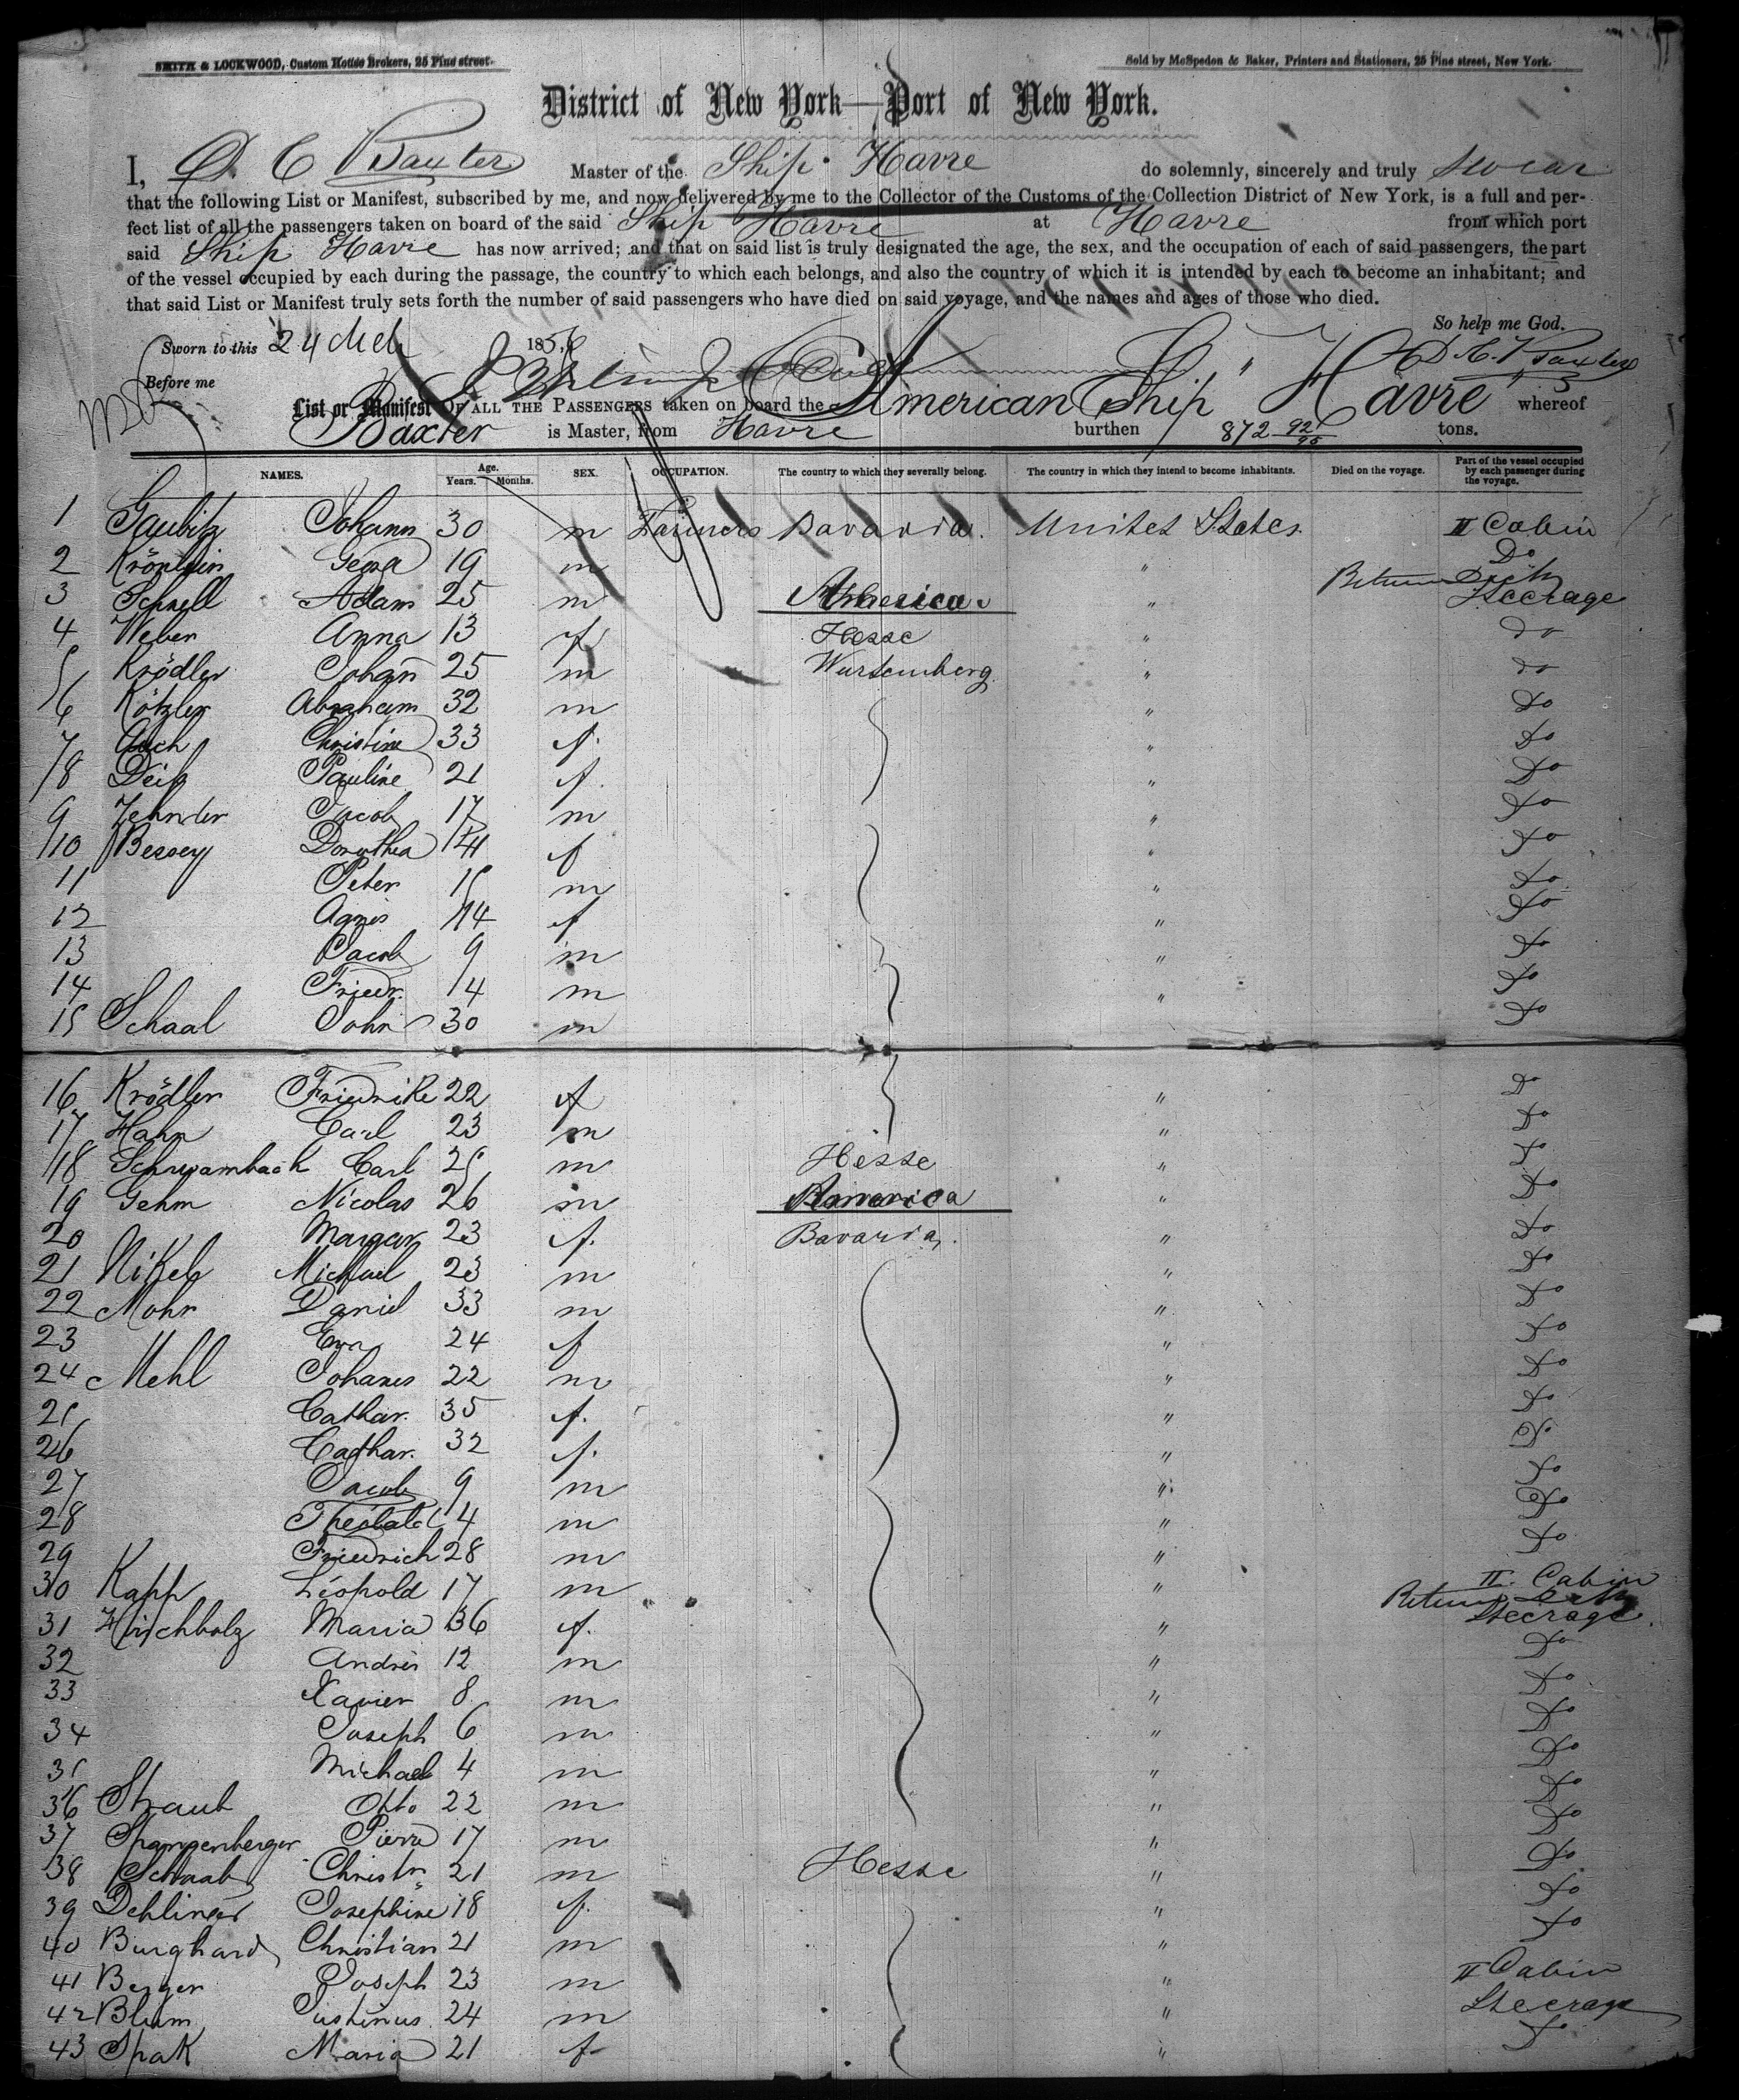 SMITH & LOCKWOOD, Custom House Brokers, 25 Pine street.
Sold by McSpedon & Baker, Printers and Stationers, 25 Pine street, New York.
District of New York—Port of New York.
I, D. C. Baxter Master of the Ship Havre do solemnly, sincerely and truly swear
that the following List or Manifest, subscribed by me, and now delivered by me to the Collector of the Customs of the Collection District of New York, is a full and per-
fect list of all the passengers taken on board of the said Ship Havre at Havre from which port
said Ship Havre has now arrived; and that on said list is truly designated the age, the sex, and the occupation of each of said passengers, the part
of the vessel occupied by each during the passage, the country to which each belongs, and also the country of which it is intended by each to become an inhabitant; and
that said List or Manifest truly sets forth the number of said passengers who have died on said voyage, and the names and ages of those who died.
So help me God.
Sworn to this 24 Mch 185
Before me
List or Manifest OF ALL THE PASSENGERS taken on board the American Ship "Havre" whereof
Baxter is Master, from Havre burthen 872 92/95 tons.
NAMES. Age. Years. Months. SEX. OCCUPATION. The country to which they severally belong. The country in which they intend to become inhabitants. Died on the voyage. Part of the vessel occupied by each passenger during the voyage.
1 Gaubitz Johann 30 m Farmers Bavaria. United States. II Cabin
2 Krönlein 19 m " Do
Between Deck
3 Schnell Adam 25 m America. " Steerage
4 Weber Anna 13 f Hesse " do
5 Krödler Johan 25 m Wurtemberg " do
6 Kötzler Abraham 32 m " Do
7 Auch Christine 33 f. " Do
8 Pauline 21 f. " Do
9 Zehnder Jacob 17 m " Do
10 Bessey Dorothea f " Do
11 Peter 15 m " Do
12 Agnes 14 f " Do
13 Jacob 9 m " Do
14 Friedr. 14 m " Do
15 Schaal John 30 m " Do
16 Krödler Friedrike 22 f " Do
17 Hahn Carl 23 m " Do
18 Schwambach Carl 25 m Hesse " Do
19 Gehm Nicolas 26 m " Do
20 Margar 23 f. Bavaria. " Do
21 Nikel Michael 23 m " Do
22 Mohr Daniel 33 m " Do
23 Eva 24 f " Do
24 Mehl Johanes 22 m " Do
25 Cathar. 35 f. " Do
26 Cathar. 32 f. " Do
27 Jacob 9 m " Do
28 4 m " Do
29 Friedrich 28 m " Do
30 Kapp Léopold 17 m " II. Cabin
Between Deck
31 Hirchholz Maria 36 f. " Steerage.
32 Andrés 12 m " Do
33 Xavier 8 m " Do
34 Joseph 6 m " Do
35 Michael 4 m " Do
36 Straub Otto 22 m " Do
37 Spangenberger Pierre 17 m " Do
38 Schaab Christn 21 m Hesse " Do
39 Dehlinger Josephine 18 f. " Do
40 Burghard Christian 21 m " Do
41 Berger Joseph 23 m " II Cabin
42 Blum Justinus 24 m " Steerage
43 Spak Maria 21 f " Do